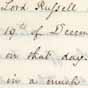 Lord Russell
19th of Decem
on that day
in a much